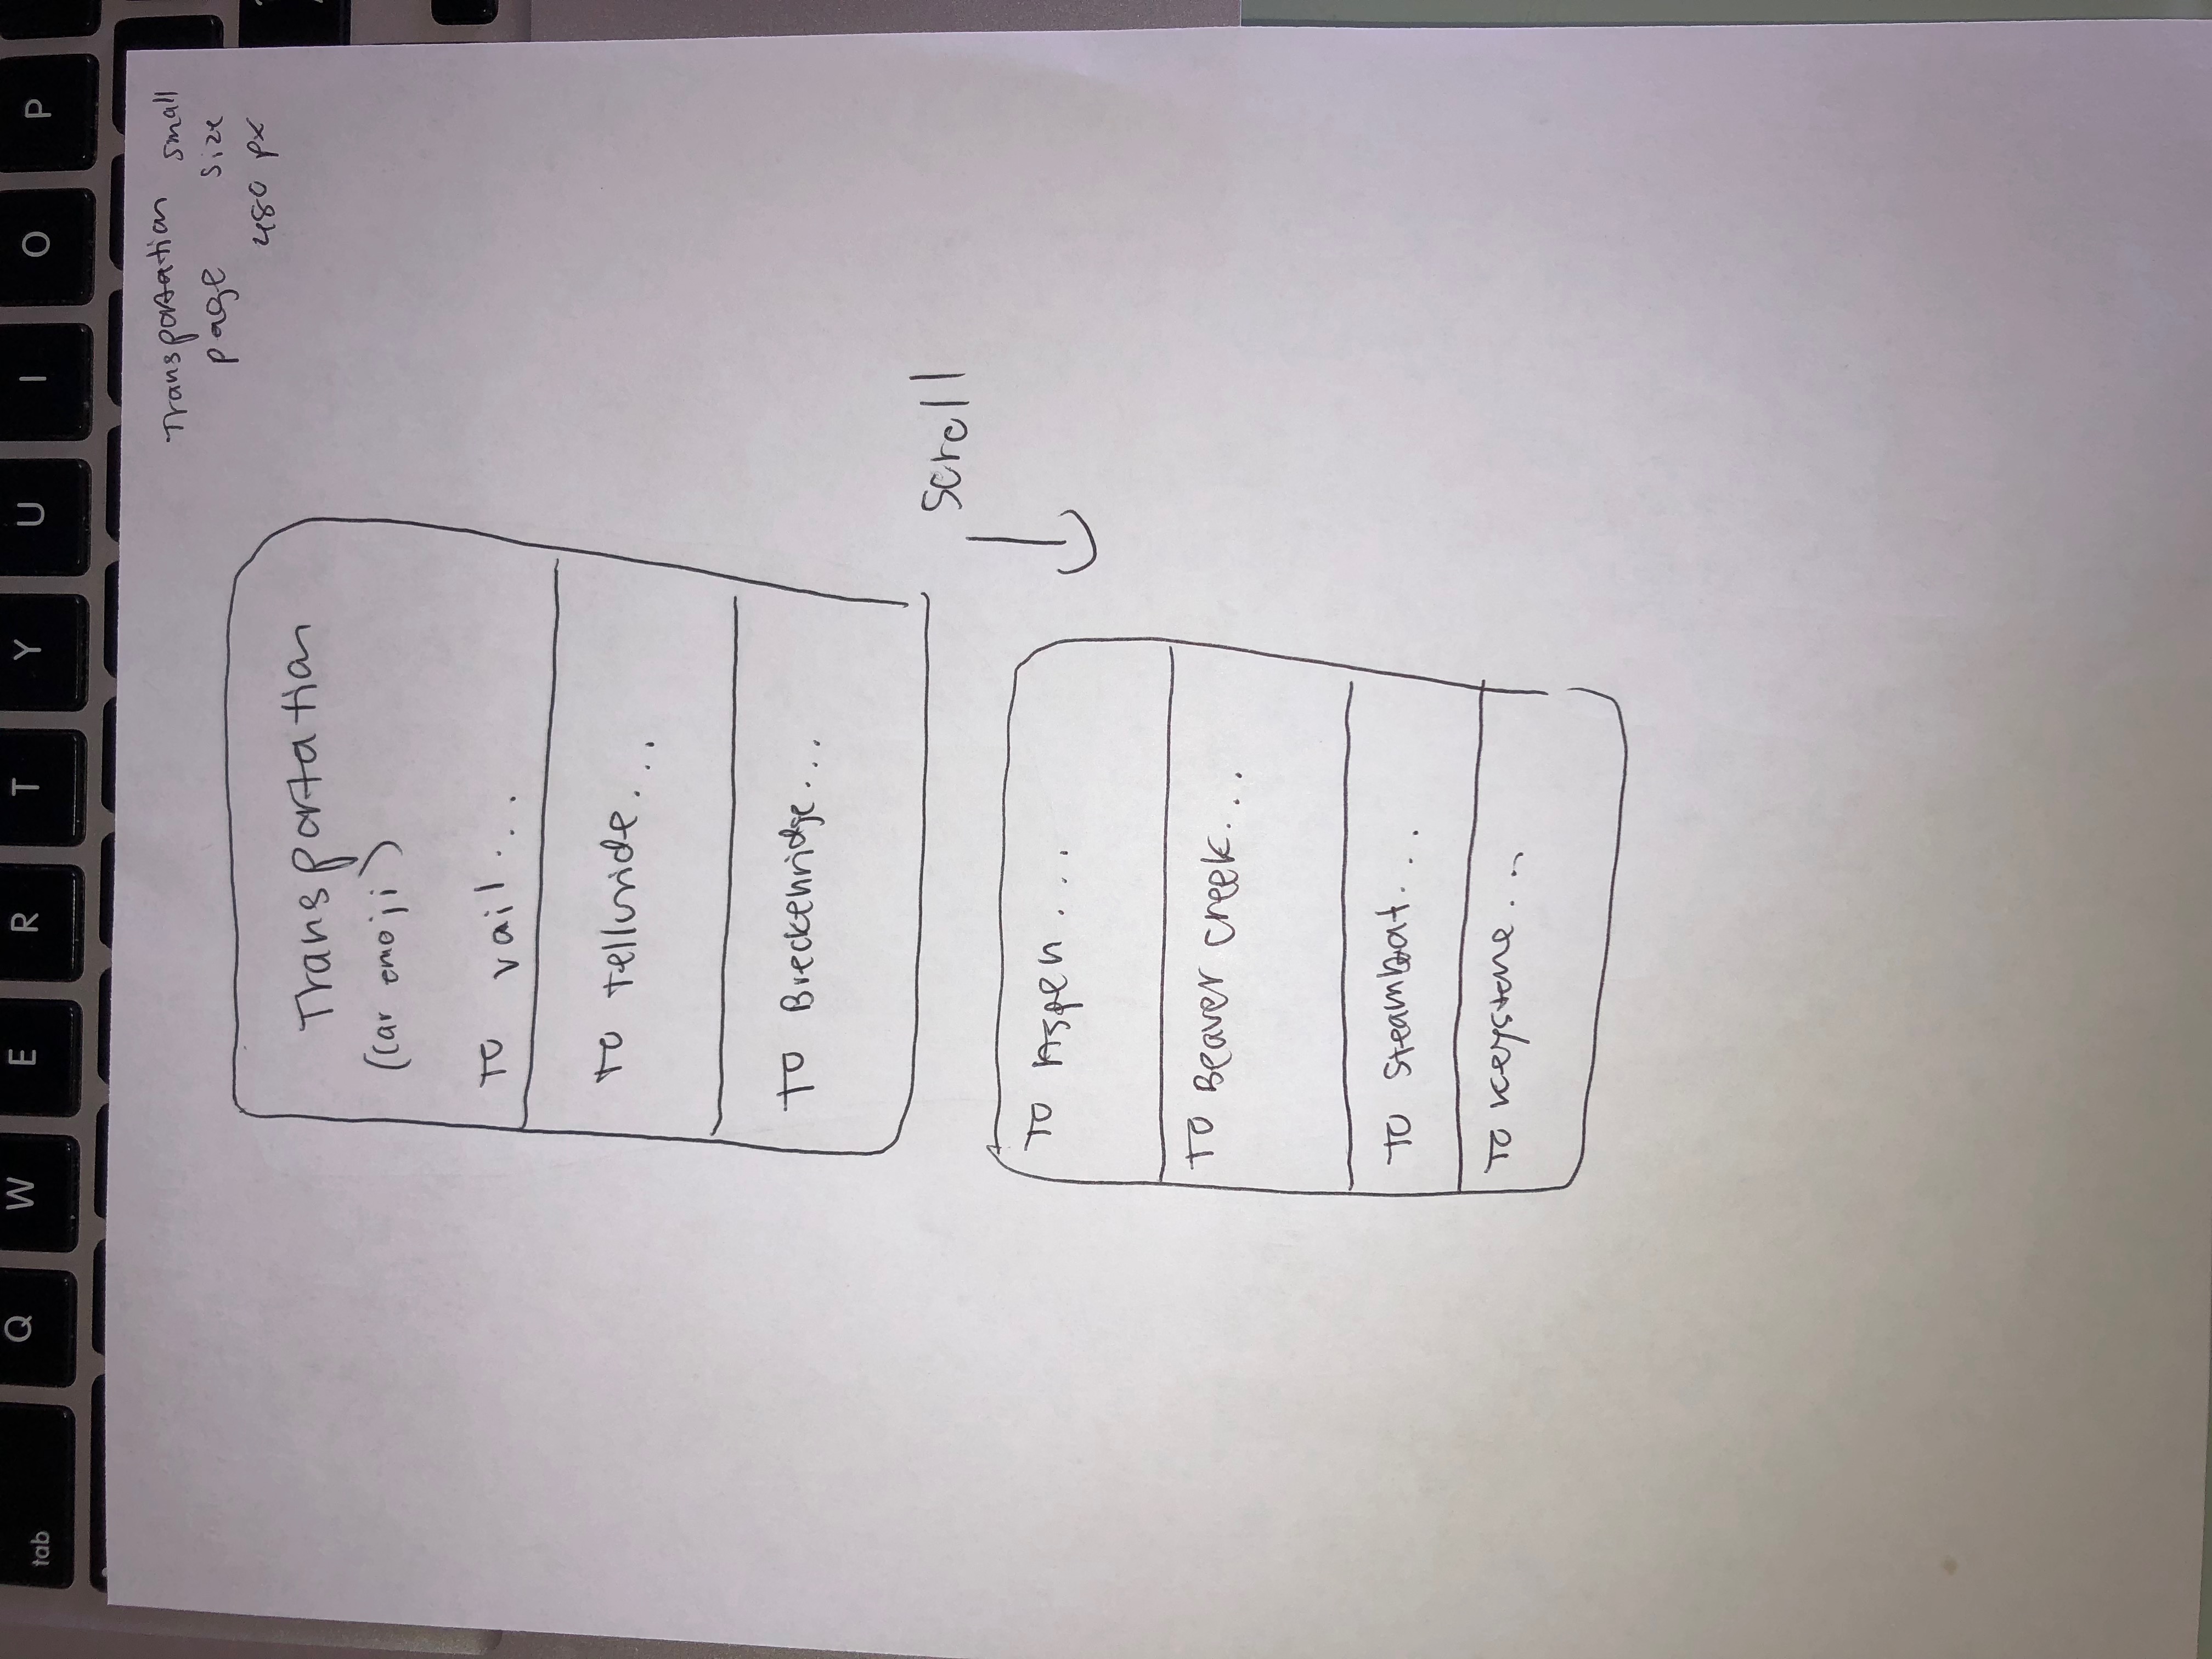 tab
Q W E R T Y U I O P
Transportation small
page size
480 px
Transportation
(Car emoji)
To vail...
To Telluride...
To Breckenridge...
scroll
To Aspen...
To Beaver creek...
To Steamboat...
To Keystone...